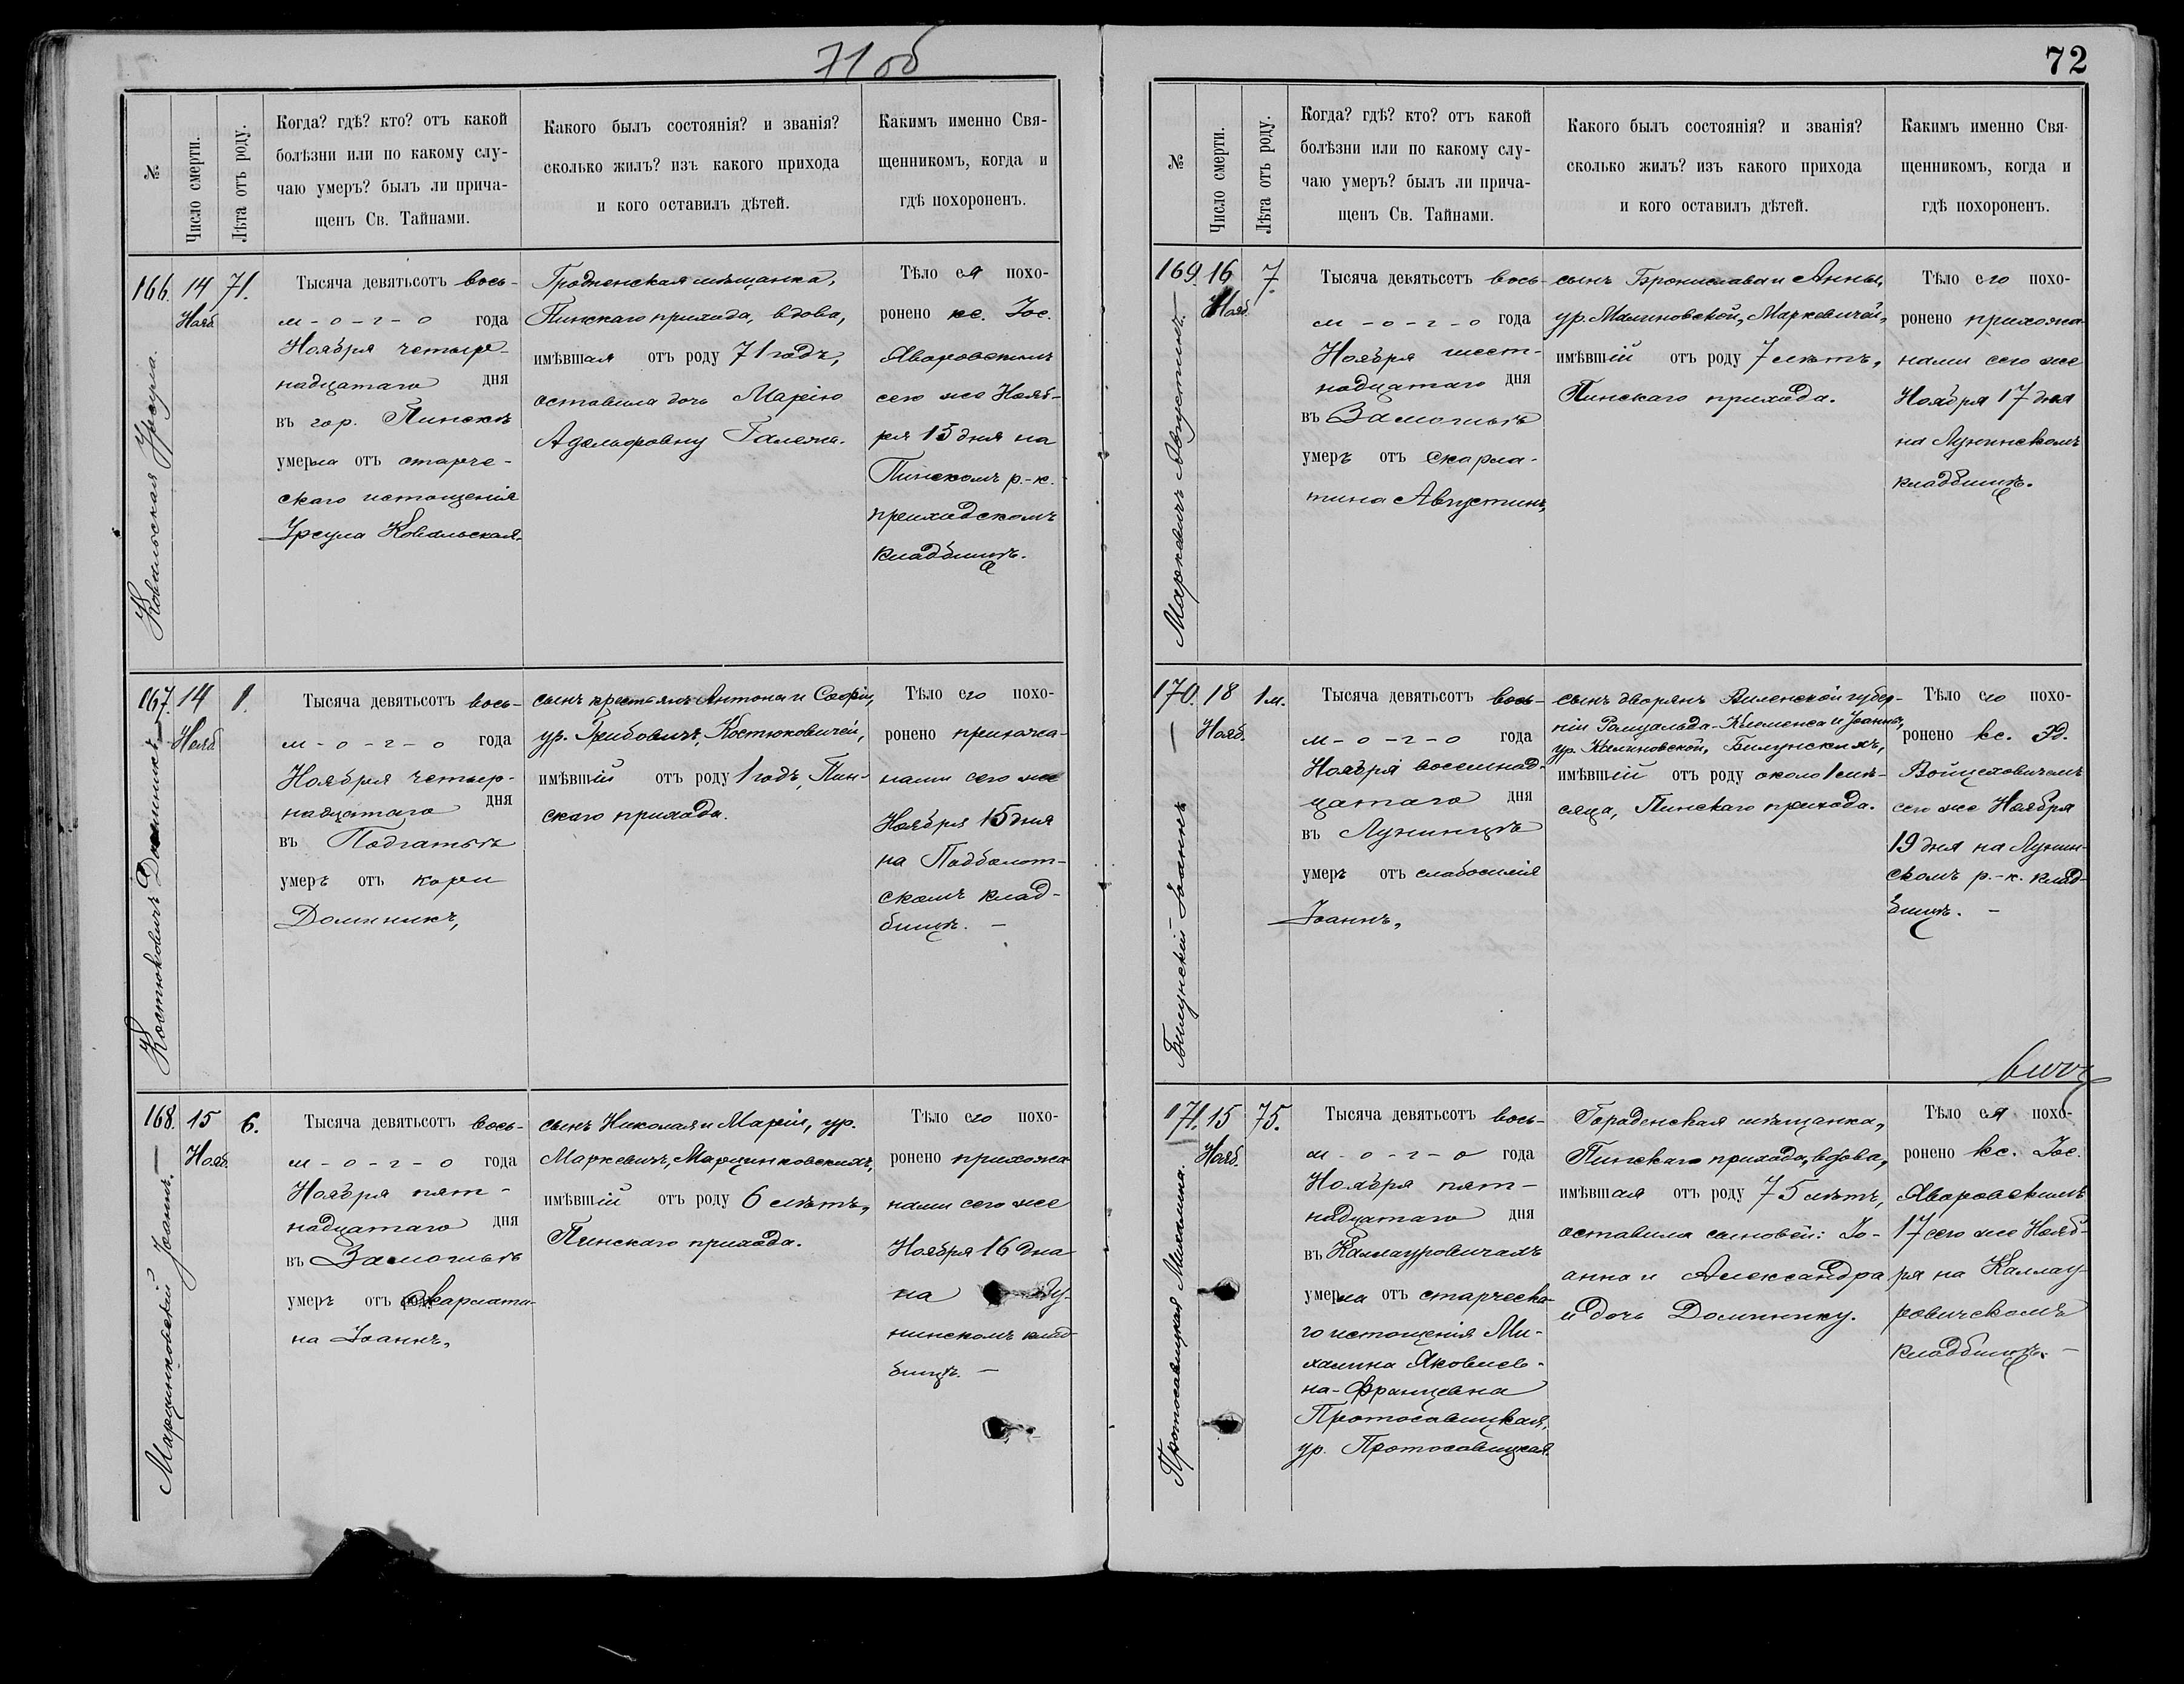 71 об
№
Число смерти.
Лѣта отъ роду.
Когда? гдѣ? кто? отъ какой
болѣзни или по какому слу-
чаю умеръ? былъ ли прича-
щенъ Св. Тайнами.
Какого былъ состоянія? и званія?
сколько жилъ? изъ какого прихода
и кого оставилъ дѣтей.
Какимъ именно Свя-
щенникомъ, когда и
гдѣ похороненъ.
166.
Ковальская Урсула.
14
Нояб.
71.
Тысяча девятьсотъ вось-
м-о-г-о года
Ноября четыре-
надцатаго дня
въ гор. Пинскѣ
умерла отъ старче-
скаго истощенія
Урсула Ковальская.
Гродненская мѣщанка,
Пинскаго прихода, вдова,
имѣвшая отъ роду 71 годъ,
оставила дочь Марію
Адольфовну
Тѣло ея похо-
ронено кс. Іос.
Яворовскимъ
сего же Нояб-
ря 15 дня на
Пинскомъ р.-к.
приходскомъ
кладбищѣ.
167.
Костюковичъ Доминикъ.—
14
Нояб.
1.
Тысяча девятьсотъ вось-
м-о-г-о года
Ноября четыр-
надцатаго дня
въ Подгатьѣ
умеръ отъ кори
Доминикъ,
сынъ крестьянъ Антона и Софіи,
ур. Грибовичъ, Костюковичей,
имѣвшій отъ роду 1 годъ, Пин-
скаго прихода.
Тѣло его похо-
ронено прихожа-
нами сего же
Ноября 15 дня
на Подболот-
скомъ клад-
бищѣ. —
168.
Марцинковскій Іоаннъ.—
15
Нояб.
6.
Тысяча девятьсотъ вось-
м-о-г-о года
Ноября пят-
надцатаго дня
въ Замошьѣ
умеръ отъ скарлати-
на Іоаннъ,
сынъ Николая и Маріи, ур.
Маркевичъ, Марцинковскихъ,
имѣвшій отъ роду 6 лѣтъ,
Пинскаго прихода.
Тѣло его похо-
ронено прихожа-
нами сего же
Ноября 16 дня
на Лу-
нинскомъ клад-
бищѣ. —
72
№
Число смерти.
Лѣта отъ роду.
Когда? гдѣ? кто? отъ какой
болѣзни или по какому слу-
чаю умеръ? былъ ли прича-
щенъ Св. Тайнами.
Какого былъ состоянія? и званія?
сколько жилъ? изъ какого прихода
и кого оставилъ дѣтей.
Какимъ именно Свя-
щенникомъ, когда и
гдѣ похороненъ.
169.
Маркевичъ Августинъ.—
16
Нояб.
7.
Тысяча девятьсотъ вось-
м-о-г-о года
Ноября шест-
надцатаго дня
въ Замошьѣ
умеръ отъ скарла-
тина Августинъ,
сынъ Бронислава и Анны,
ур. Малиновской, Маркевичей,
имѣвшій отъ роду 7 лѣтъ,
Пинскаго прихода.
Тѣло его похо-
ронено прихожа-
нами сего же
Ноября 17 дня
на Лунинскомъ
кладбищѣ.
170.
Билунскій Іоаннъ —
18
Нояб.
1 м.
Тысяча девятьсотъ вось-
м-о-г-о года
Ноября восемнад-
цатаго дня
въ Лунинцѣ
умеръ отъ слабосилія
Іоаннъ,
сынъ дворянъ Виленской губер-
ніи Ромуальда-Клеменса и Іоанны,
ур. Калиновской, Билунскихъ,
имѣвшій отъ роду около 1 мѣ-
сяца, Пинскаго прихода.
Тѣло его похо-
ронено кс. Эд.
Войцеховичемъ
сего же Ноября
19 дня на Лунин-
скомъ р.-к. клад-
бищѣ. —
171.
Протосавицкая Михалина.—
15
Нояб.
75.
Тысяча девятьсотъ вось-
м-о-г-о года
Ноября пят-
надцатаго дня
въ Каллауровичахъ
умерла отъ старческа-
го истощенія Ми-
халина Яковлев-
на-Францевна
Протосавицкая,
ур. Протосавицкая.
Городенская мѣщанка,
Пинскаго прихода, вдова,
имѣвшая отъ роду 75 лѣтъ,
оставила сыновей: Іо-
анна и Александра
и дочь Доминику.
Тѣло ея похо-
ронено кс. Іос.
Яворовскимъ
17 сего же Нояб-
ря на Каллау-
ровичскомъ
кладбищѣ. —